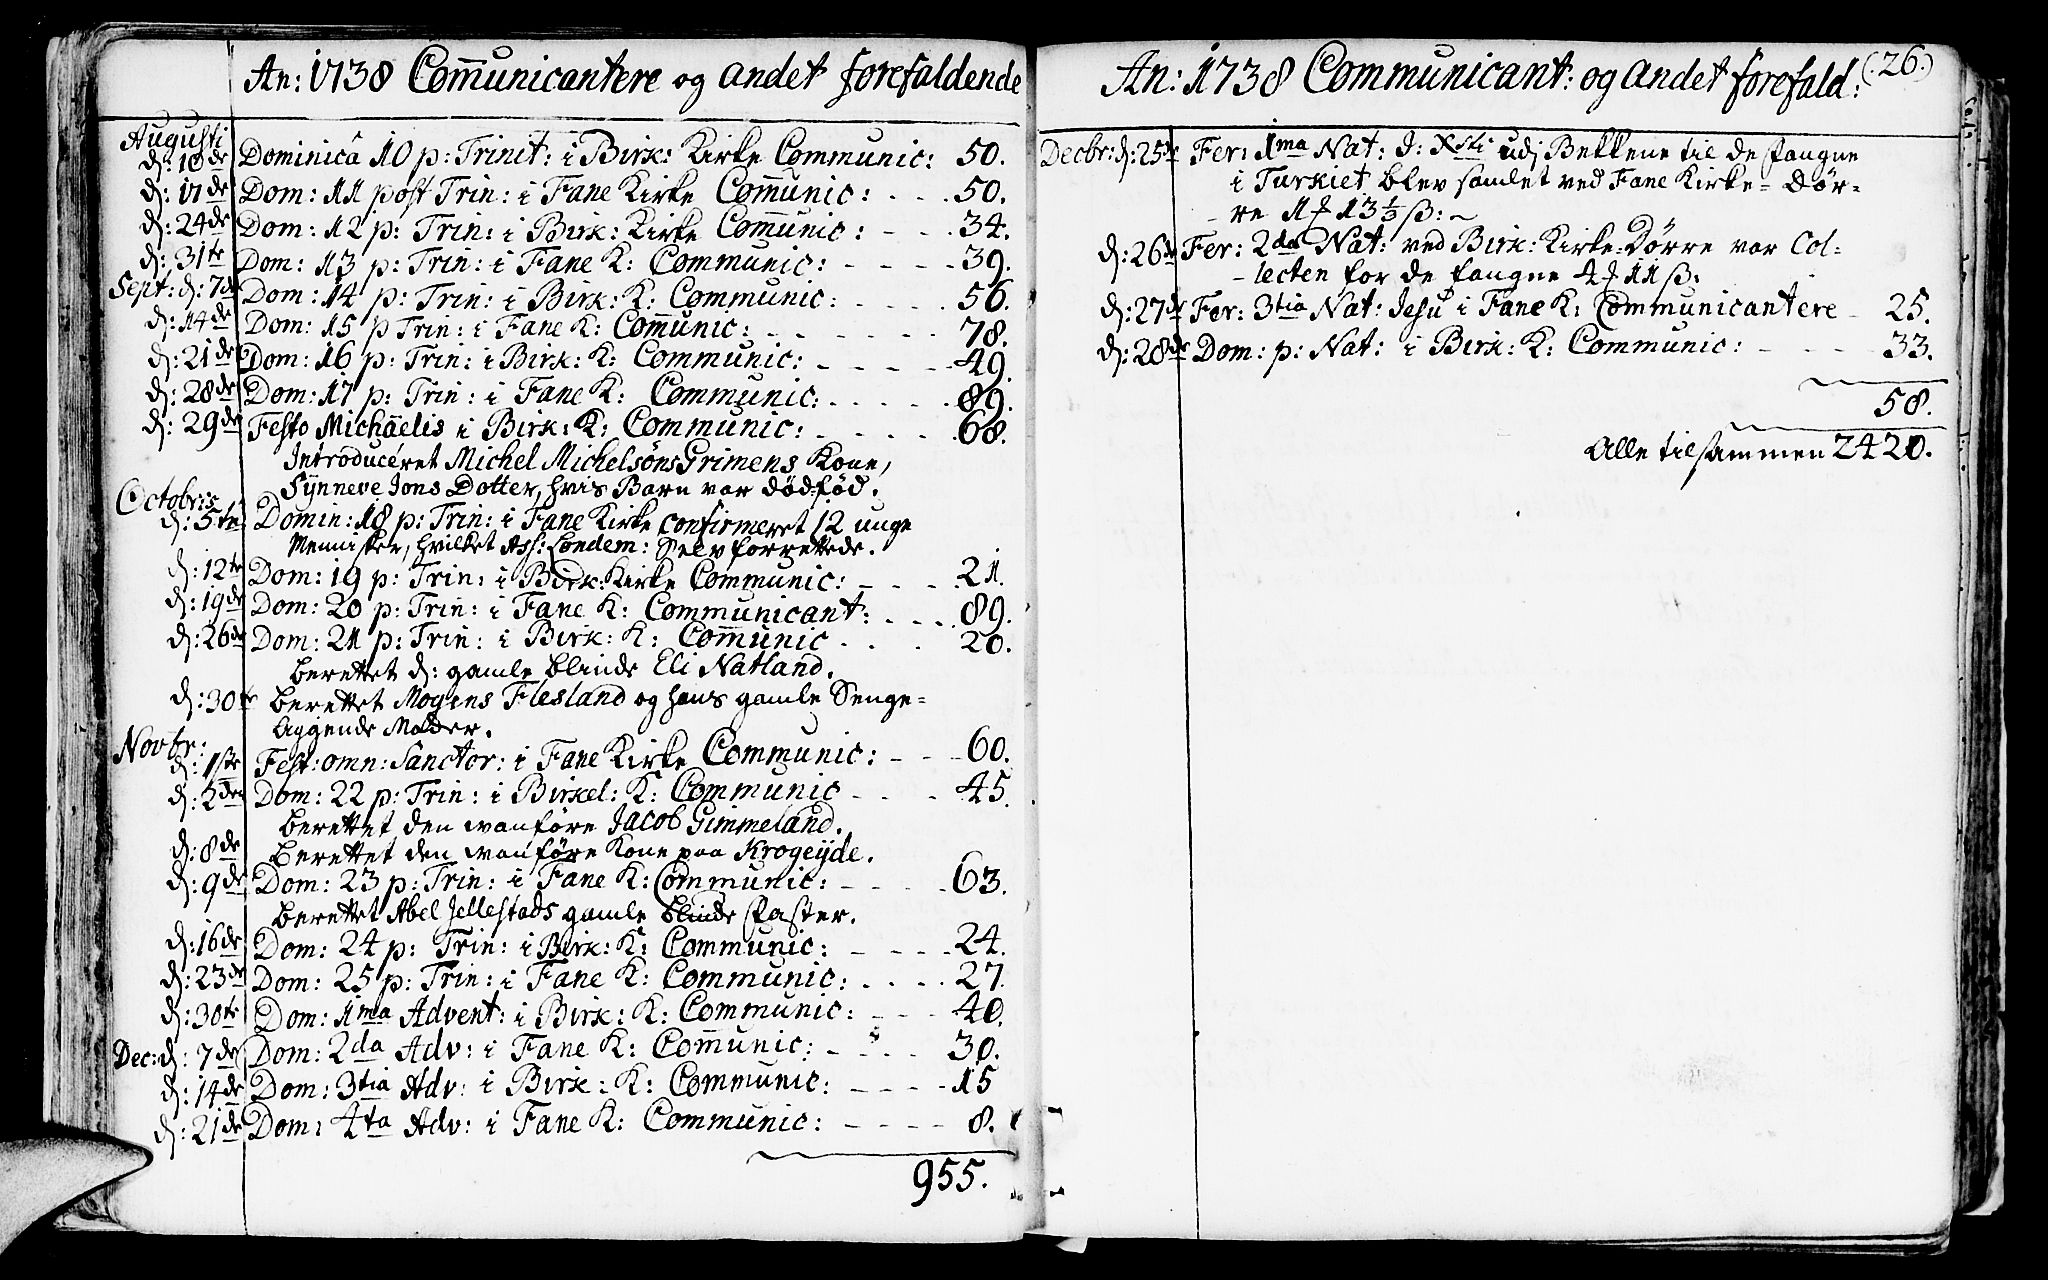 An: 1738 Com̅unicantere og andet forefaldende
Augusti
d: 10de Dominica 10 p: Trinit: i Birk: Kirke Communic: 50.
d: 17de Dom: 11 post Trin: i Fane Kirke Com̅unic: 50.
d: 24de Dom: 12 p: Trin: i Birk: Kirke Com̅unic: 34.
d: 31te Dom: 13 p: Trin: i Fane K: Communic: 39.
Sept: d: 7de Dom: 14 p: Trin: i Birk: K: Communic: 56.
d: 14de Dom: 15 p Trin: i Fane K: Com̅unic: 78.
d: 21de Dom: 16 p: Trin: i Birk: K: Communic: 49.
d: 28de Dom: 17 p: Trin: i Fane K: Communic: 89.
d: 29de Festo Michäelis i Birk: K: Communic: 68.
Introduceret Michel Michelsøns Grimens Kone,
Synneve Jons Dotter, hvis Barn var dødfød.
Octobris
d: 5te Domin: 18 p: Trin: i Fane Kirke confirmeret 12 unge
Mennisker, hvilket Ass: Londem: Selv forrettede.
d: 12te Dom: 19 p: Trin: i Birk: Kirke Communic: 21.
d: 19de Dom: 20 p: Trin: i Fane K: Communicant: 89.
d: 26de Dom: 21 p: Trin: i Birk: K: Com̅unic 20.
berettet d: gamle blinde Eli Natland.
d: 30te berettet Mogens Flesland og hans gamle Senge=
liggende Moder.
Novbr:
d: 1ste Fest: omn: Sanctor: i Fane Kirke Communic: 60.
d: 2den Dom: 22 p: Trin: i Birkel: K: Communic 45.
berettet den vanføre Jacob Gimmeland.
d: 8de berettet den vanføre Kone paa Krogeyde.
d: 9de Dom: 23 p: Trin: i Fane K: Communic: 63.
berettet Abel Jellestads gamle blinde Faster.
d: 16de Dom: 24 p: Trin: i Birk: K: Communic: 24.
d: 23de Dom: 25 p: Trin: i Fane K: Communic: 27.
d: 30te Dom: 1ma Advent: i Birk: K: Communic: 40.
Dec: d: 7de Dom: 2da Adv: i Fane K: Com̅unic: 30.
d: 14de Dom: 3tia Adv: i Birk: K: Communic: 15
d: 21de Dom: 4ta Adv: i Fane K: Communic: 8.
955.
An: 1738 Communicant: og andet forefald: (26.)
Decbr: d: 25de Fer: 1ma Nat: J: Xsti udj Bekkene til de fangne
i Turkiet blev samlet ved Fane Kirke= Dør=
re 1 13 1/3 ß:
d: 26de Fer: 2da Nat: ved Birk: Kirke=Dørre var Col=
lecten for de fangne 4 11 ß:
d: 27de Fer: 3tia Nat: Jesu i Fane K: Communicantere 25.
d: 28de Dom: p: Nat: i Birk: K: Communic: 33.
58.
Alle tilsammen 2420.